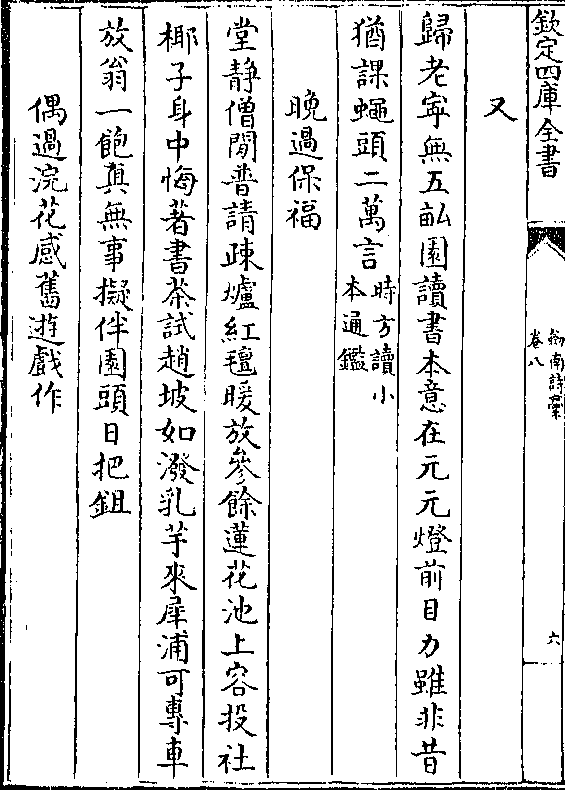 欽定四庫全書
劒南詩藁
卷八
六
又
歸老寜無五畝園讀書本意在元元燈前目力雖非昔
猶課蠅頭二萬言時方讀小
本通鑑
晚過保福
堂靜僧閒普請疎爐紅氊暖放參餘蓮花池上容投社
椰子身中悔著書茶試趙坡如潑乳芋來犀浦可專車
放翁一飽真無事擬伴園頭日把鉏
偶過浣花感舊遊戲作